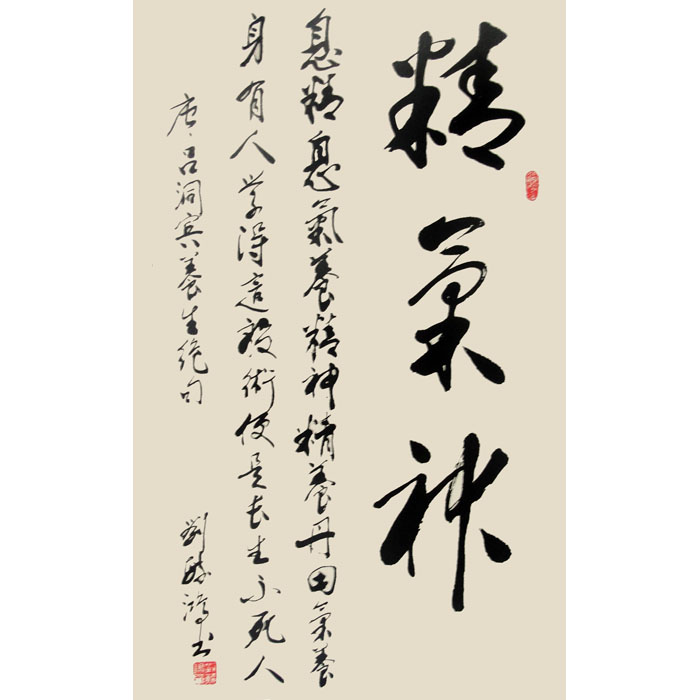 精氣神
息精息氣養精神精養丹田氣養
身有人学得這般術便是长生不死人
唐·吕洞宾養生绝句
劉鸿书